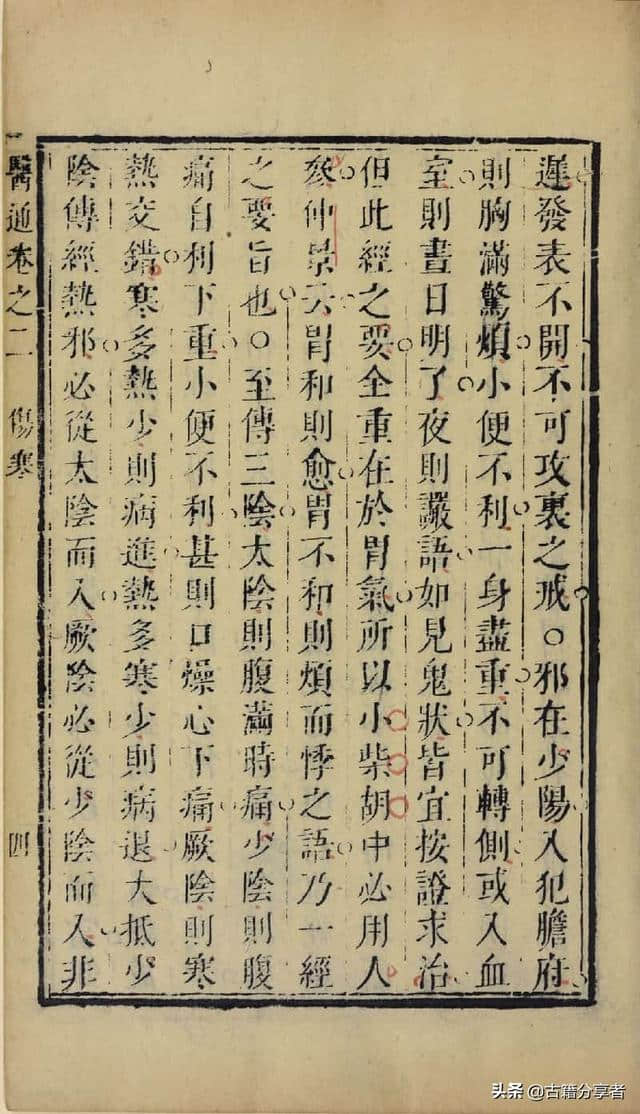 遲發表不開不可攻裏之戒○邪在少陽入犯膽府
則胸滿驚煩小便不利一身盡重不可轉側或入血
室則晝日明了夜則讝語如見鬼狀皆宜按證求治
但此經之要全重在於胃氣所以小柴胡中必用人
參仲景云胃和則愈胃不和則煩而悸之語乃一經
之要旨也○至傳三陰太陰則腹滿時痛少陰則腹
痛自利下重小便不利甚則口燥心下痛厥陰則寒
熱交錯寒多熱少則病進熱多寒少則病退大抵少
陰傳經熱邪必從太陰而入厥陰必從少陰而入非
醫通卷之二 傷寒 四
头条 @古籍分享者